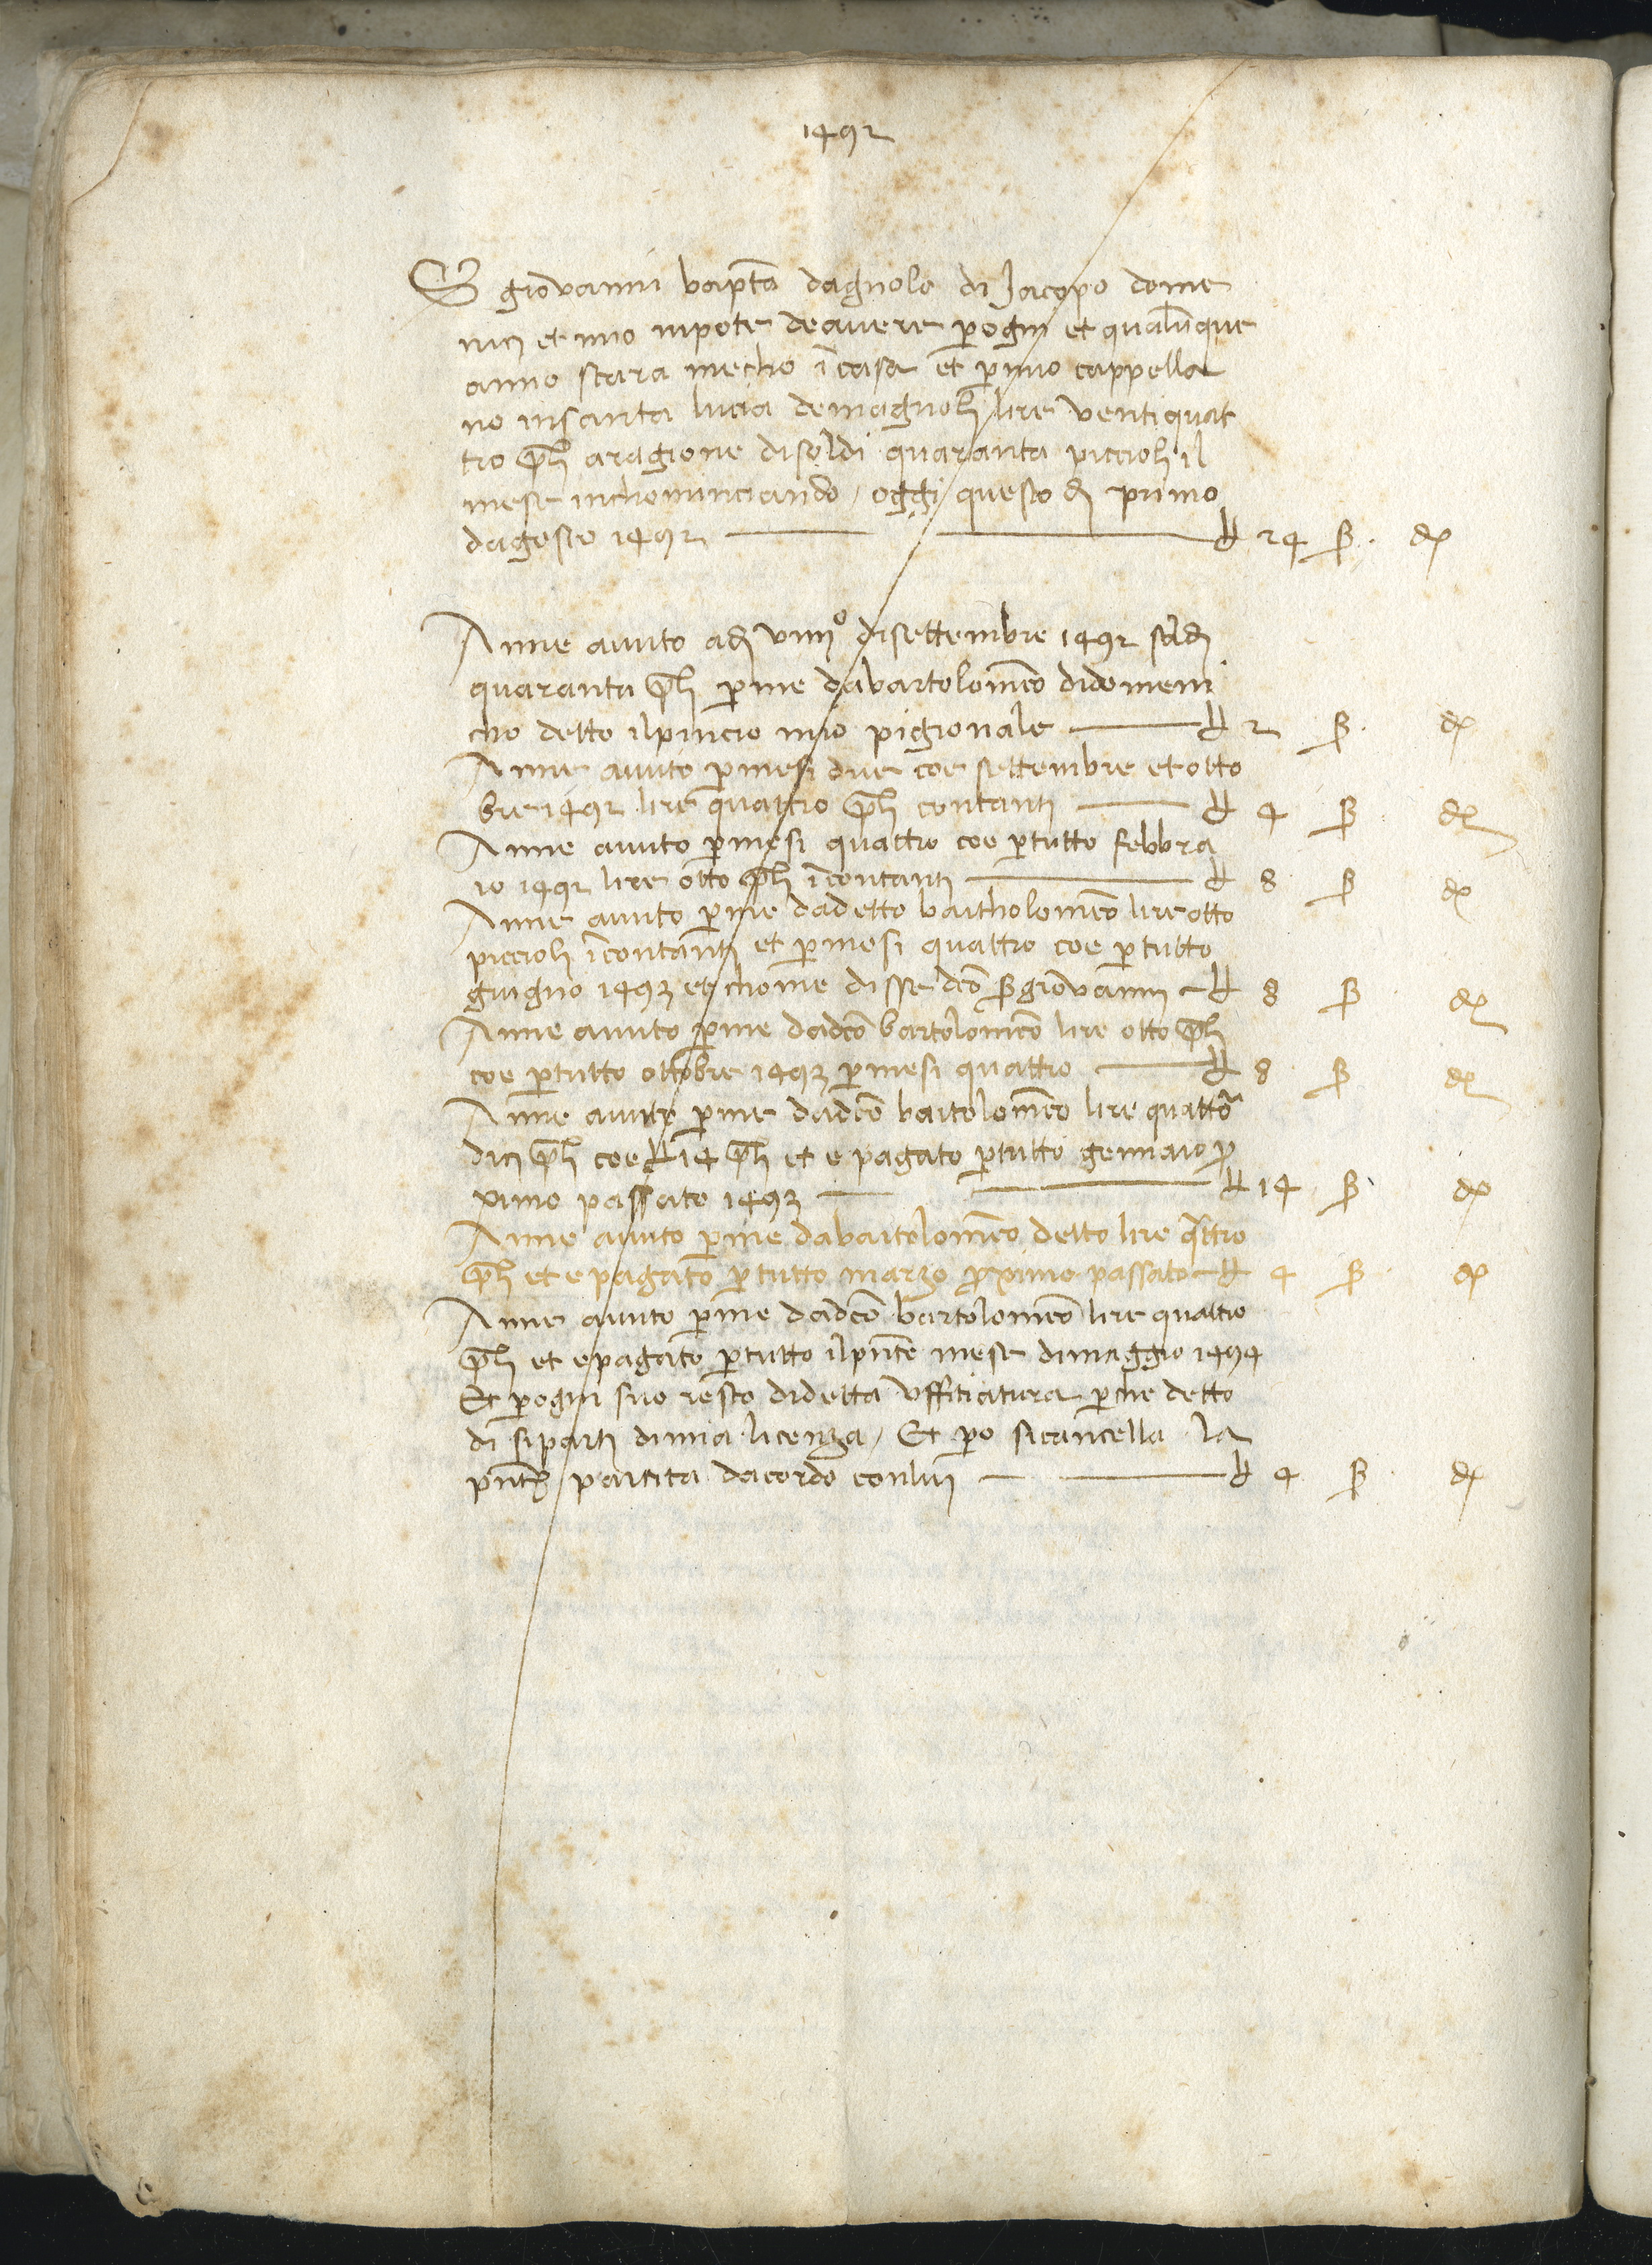 1492
S giovanni bapta dagnolo di Jacopo dome
nici et mio nipote de avere p ogni et qualunque
anno stara mecho i casa et p mio cappella
no in santa lucia de magnoli lire venti quat
tro pli a ragione di soldi quaranta piccioli il
mese inchominciando / oggi questo di primo
dagosto 1492 ₶ 24 ß d
Anne avuto adi viiijº di settembre 1492 soldi
quaranta pli p me da bartolomeo di domeni
cho detto il pincio mio pigionale ₶ 2 ß d
Anne avuto p mesi due coe settembre et otto
bre 1492 lire quattro pli contanti ₶ 4 ß d
Anne avuto p mesi quattro coe p tutto febbra
io 1492 lire otto pli i contanti ₶ 8 ß d
Anne avuto p me da detto bartholomeo lire otto
piccioli i contanti et p mesi quattro coe p tutto
giugno 1493 et chome disse dco ß giovanni ₶ 8 ß d
Anne avuto p me da dco bartolomeo lire otto pli
coe p tutto ottobre 1493 p mesi quattro ₶ 8 ß d
Anne avuto p me da dco bartolomeo lire quatto
dici pli coe ₶ 14 pli et e pagato p tutto gennaio p
ximo passato 1493 ₶ 14 ß d
Anne avuto p me da bartolomeo detto lire qttro
pli et e pagato p tutto marzo pximo passato ₶ 4 ß d
Anne avuto p me da dco bartolomeo lire quattro
pli et e pagato p tutto il pnte mese di maggio 1494
Et p ogni suo resto di detta uffitiatura p che detto
di si parti di mia licenza / Et po si cancella la
pnte partita dacordo con lui ₶ 4 ß d